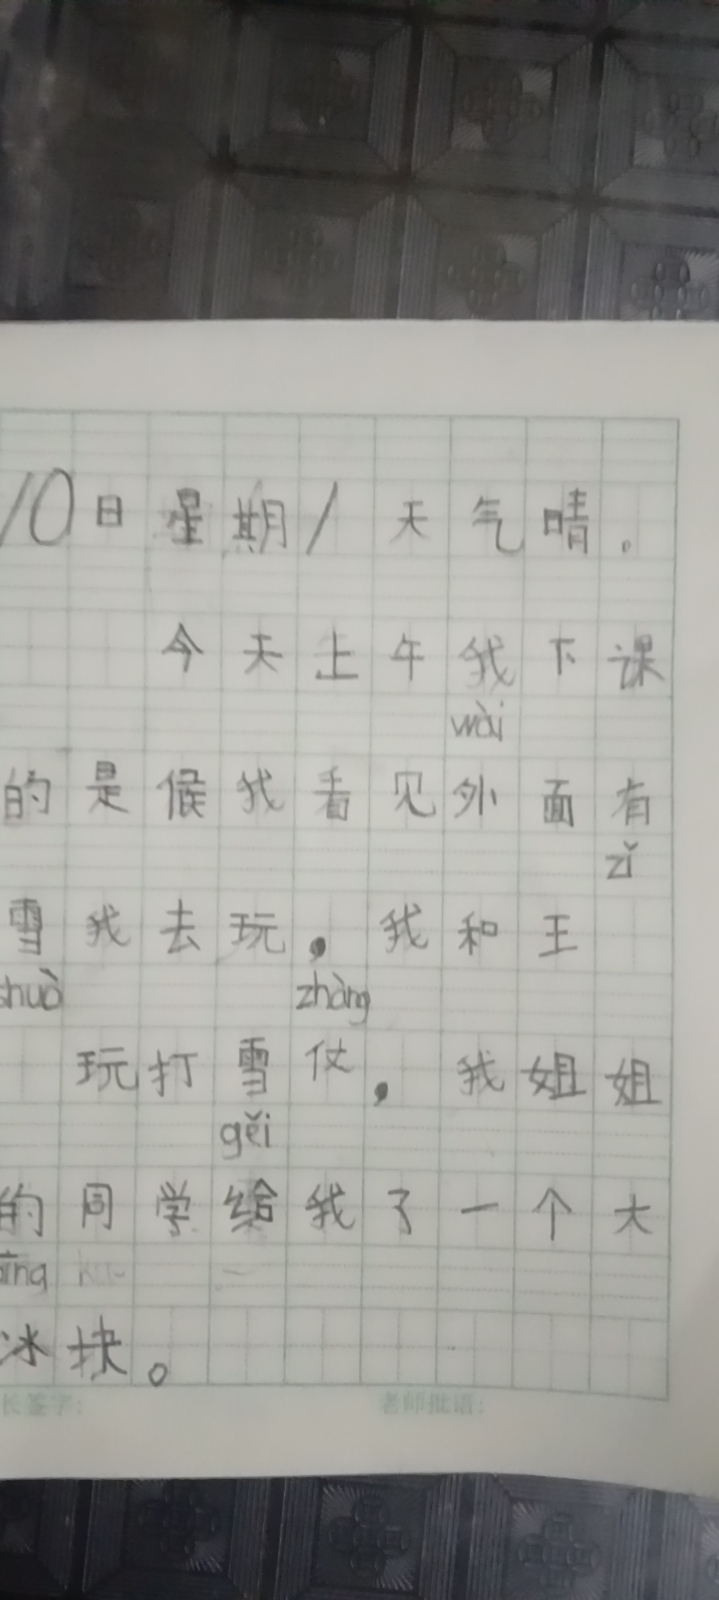 10日星期1 天气晴。
今天上午我下课
wài
的是候我看见外面有
zǐ
雪我去玩，我和王
shuò zhàng
玩打雪仗，我姐姐
gěi
的同学给我了一个大
bīng
冰块。
长签字： 老师批语：